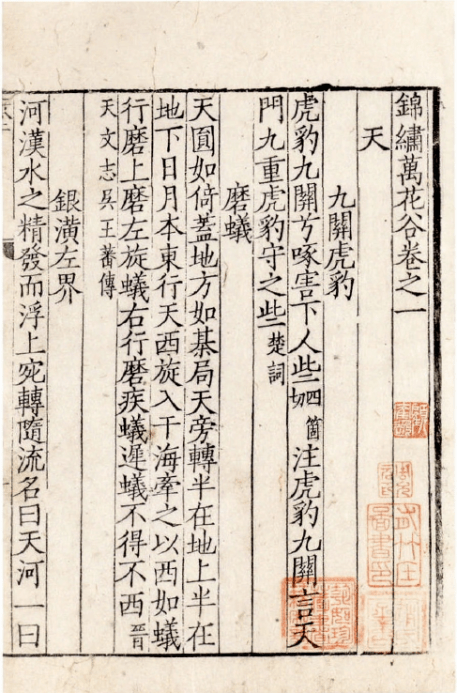 錦繡萬花谷卷之一
天
九關虎豹
虎豹九關兮啄害下人些四箇注虎豹九關言天
門九重虎豹守之些楚詞
磨蟻
天圓如倚蓋地方如棊局天旁轉半在地上半在
地下日月本東行天西旋入于海牽之以西如蟻
行磨上磨左旋蟻右行磨疾蟻遲蟻不得不西晉
天文志吳王蕃傳
銀潢左界
河漢水之精發而浮上宛轉隨流名曰天河一曰